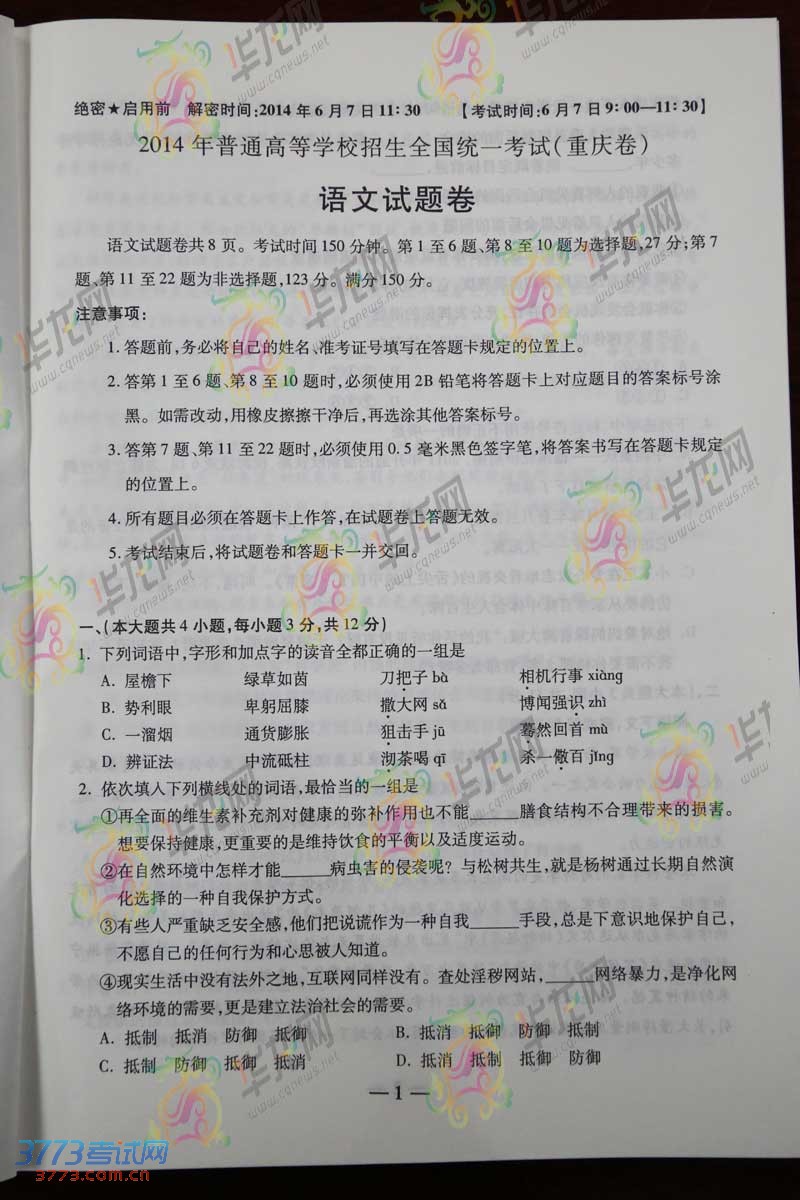 绝密★启用前 解密时间:2014年6月7日11:30 【考试时间:6月7日9:00—11:30】
2014年普通高等学校招生全国统一考试(重庆卷)
语文试题卷
语文试题卷共8页。考试时间150分钟。第1至6题、第8至10题为选择题,27分;第7
题、第11至22题为非选择题,123分。满分150分。
注意事项:
1.答题前,务必将自己的姓名、准考证号填写在答题卡规定的位置上。
2.答第1至6题、第8至10题时,必须使用2B铅笔将答题卡上对应题目的答案标号涂
黑。如需改动,用橡皮擦擦干净后,再选涂其他答案标号。
3.答第7题、第11至22题时,必须使用0.5毫米黑色签字笔,将答案书写在答题卡规定
的位置上。
4.所有题目必须在答题卡上作答,在试题卷上答题无效。
5.考试结束后,将试题卷和答题卡一并交回。
一、(本大题共4小题,每小题3分,共12分)
1. 下列词语中,字形和加点字的读音全都正确的一组是
A. 屋檐下 绿草如茵 刀把子bà 相机行事xiàng
B. 势利眼 卑躬屈膝 撒大网sǎ 博闻强识zhì
C. 一溜烟 通货膨胀 狙击手jū 蓦然回首mù
D. 辨证法 中流砥柱 沏茶喝qī 杀一儆百jǐng
2. 依次填入下列横线处的词语,最恰当的一组是
①再全面的维生素补充剂对健康的弥补作用也不能______膳食结构不合理带来的损害。
想要保持健康,更重要的是维持饮食的平衡以及适度运动。
②在自然环境中怎样才能______病虫害的侵袭呢?与松树共生,就是杨树通过长期自然演
化选择的一种自我保护方式。
③有些人严重缺乏安全感,他们把说谎作为一种自我______手段,总是下意识地保护自己,
不愿自己的任何行为和心思被人知道。
④现实生活中没有法外之地,互联网同样没有。查处淫秽网站,______网络暴力,是净化网
络环境的需要,更是建立法治社会的需要。
A. 抵制 抵消 防御 抵御 B. 抵消 抵御 防御 抵制
C. 抵制 防御 抵御 抵消 D. 抵消 抵制 抵御 防御
— 1 —
3773考试网
3773.com.cn
华龙网
www.cqnews.net